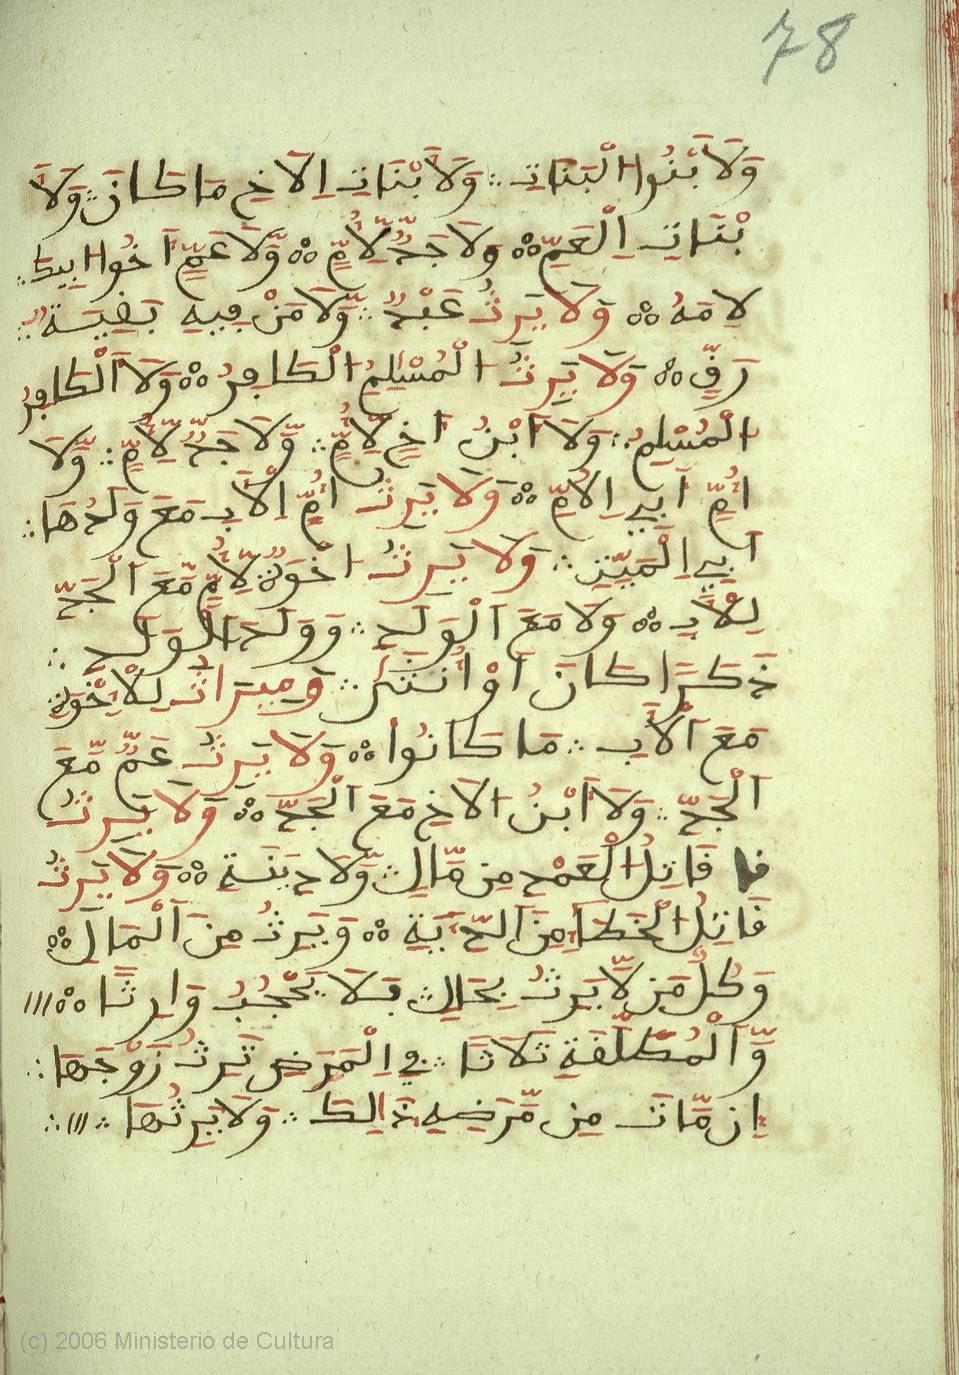 78
وَلَا بَنُوا الْبَنَاتِ ۞ وَلَا بَنَاتِ اِلَاخِ مَا كَانَ ۞ وَلَا
بَنَاتِ اِلْعَمِّ ۞ وَلَا جَدٌّ لِّامٍّ ۞ وَّلَا عَمٌّ اَخُوا ابِيكَ
لِامِّهِ ۞ وَلَا يَرِثُ عَبْدٌ ۞ وَّلَا مَنْ فِيهِ بَقِيَّةُ
رِقٍّ ۞ وَلَا يَرِثُ الْمُسْلِمُ الْكَافِرَ ۞ وَلَا اَلْكَافِرُ
الْمُسْلِمَ ۞ وَلَا اَبْنُ اَخٍ لِّامٍّ ۞ وَّلَا جَدٌّ لِّامٍّ ۞ وَّلَا
اُمُّ اَبِي اِلُامِّ ۞ وَلَا تَرِثُ اُمُّ اِلَابِ مَعَ وَلَدِهَا
اَبِي اِلْمَيِّتِ ۞ وَلَا يَرِثُ اخْوَةٌ لِّامٍّ مَّعَ اَلْجَدِّ
لِلَابِ ۞ وَلَا مَعَ اَلْوَلَدِ ۞ وَوَلَدِ الْوَلَدِ ۞
ذَكَرًا كَانَ اَوُ انثَى ۞ وَمِيرَاثَ لِلْاِخْوَةِ
مَعَ اَلَابِ ۞ مَا كَانُوا ۞ وَلَا يَرِثُ عَمٌّ مَّعَ
اَلْجَدِّ ۞ وَلَا اَبْنُ الَاخِ مَعَ اَلْجَدِّ ۞ وَلَا يَرِثُ
قَاتِلُ الْعَمْدِ مِن مَّالٍ ۞ وَّلَا دِيَةٍ ۞ وَلَا يَرِثُ
قَاتِلُ الْخَطَإِ مِنَ اَلدِّيَةِ ۞ وَيَرِثُ مِنَ اَلْمَالِ ۞
وَكُلُّ مَن لَّا يَرِثُ بِحَالٍ ۞ فَلَا يَحْجُبُ وَارِثًا ۞
وَّالْمُطَلَّقَةِ ثَلَاثًا ۞ فِي اِلْمَرَضِ تَرِثُ زَوْجَهَا ۞
اِن مَّاتَ مِن مَّرَضِهِ ذَالِكَ ۞ وَلَا يَرِثُهَا ۞
(c) 2006 Ministerio de Cultura